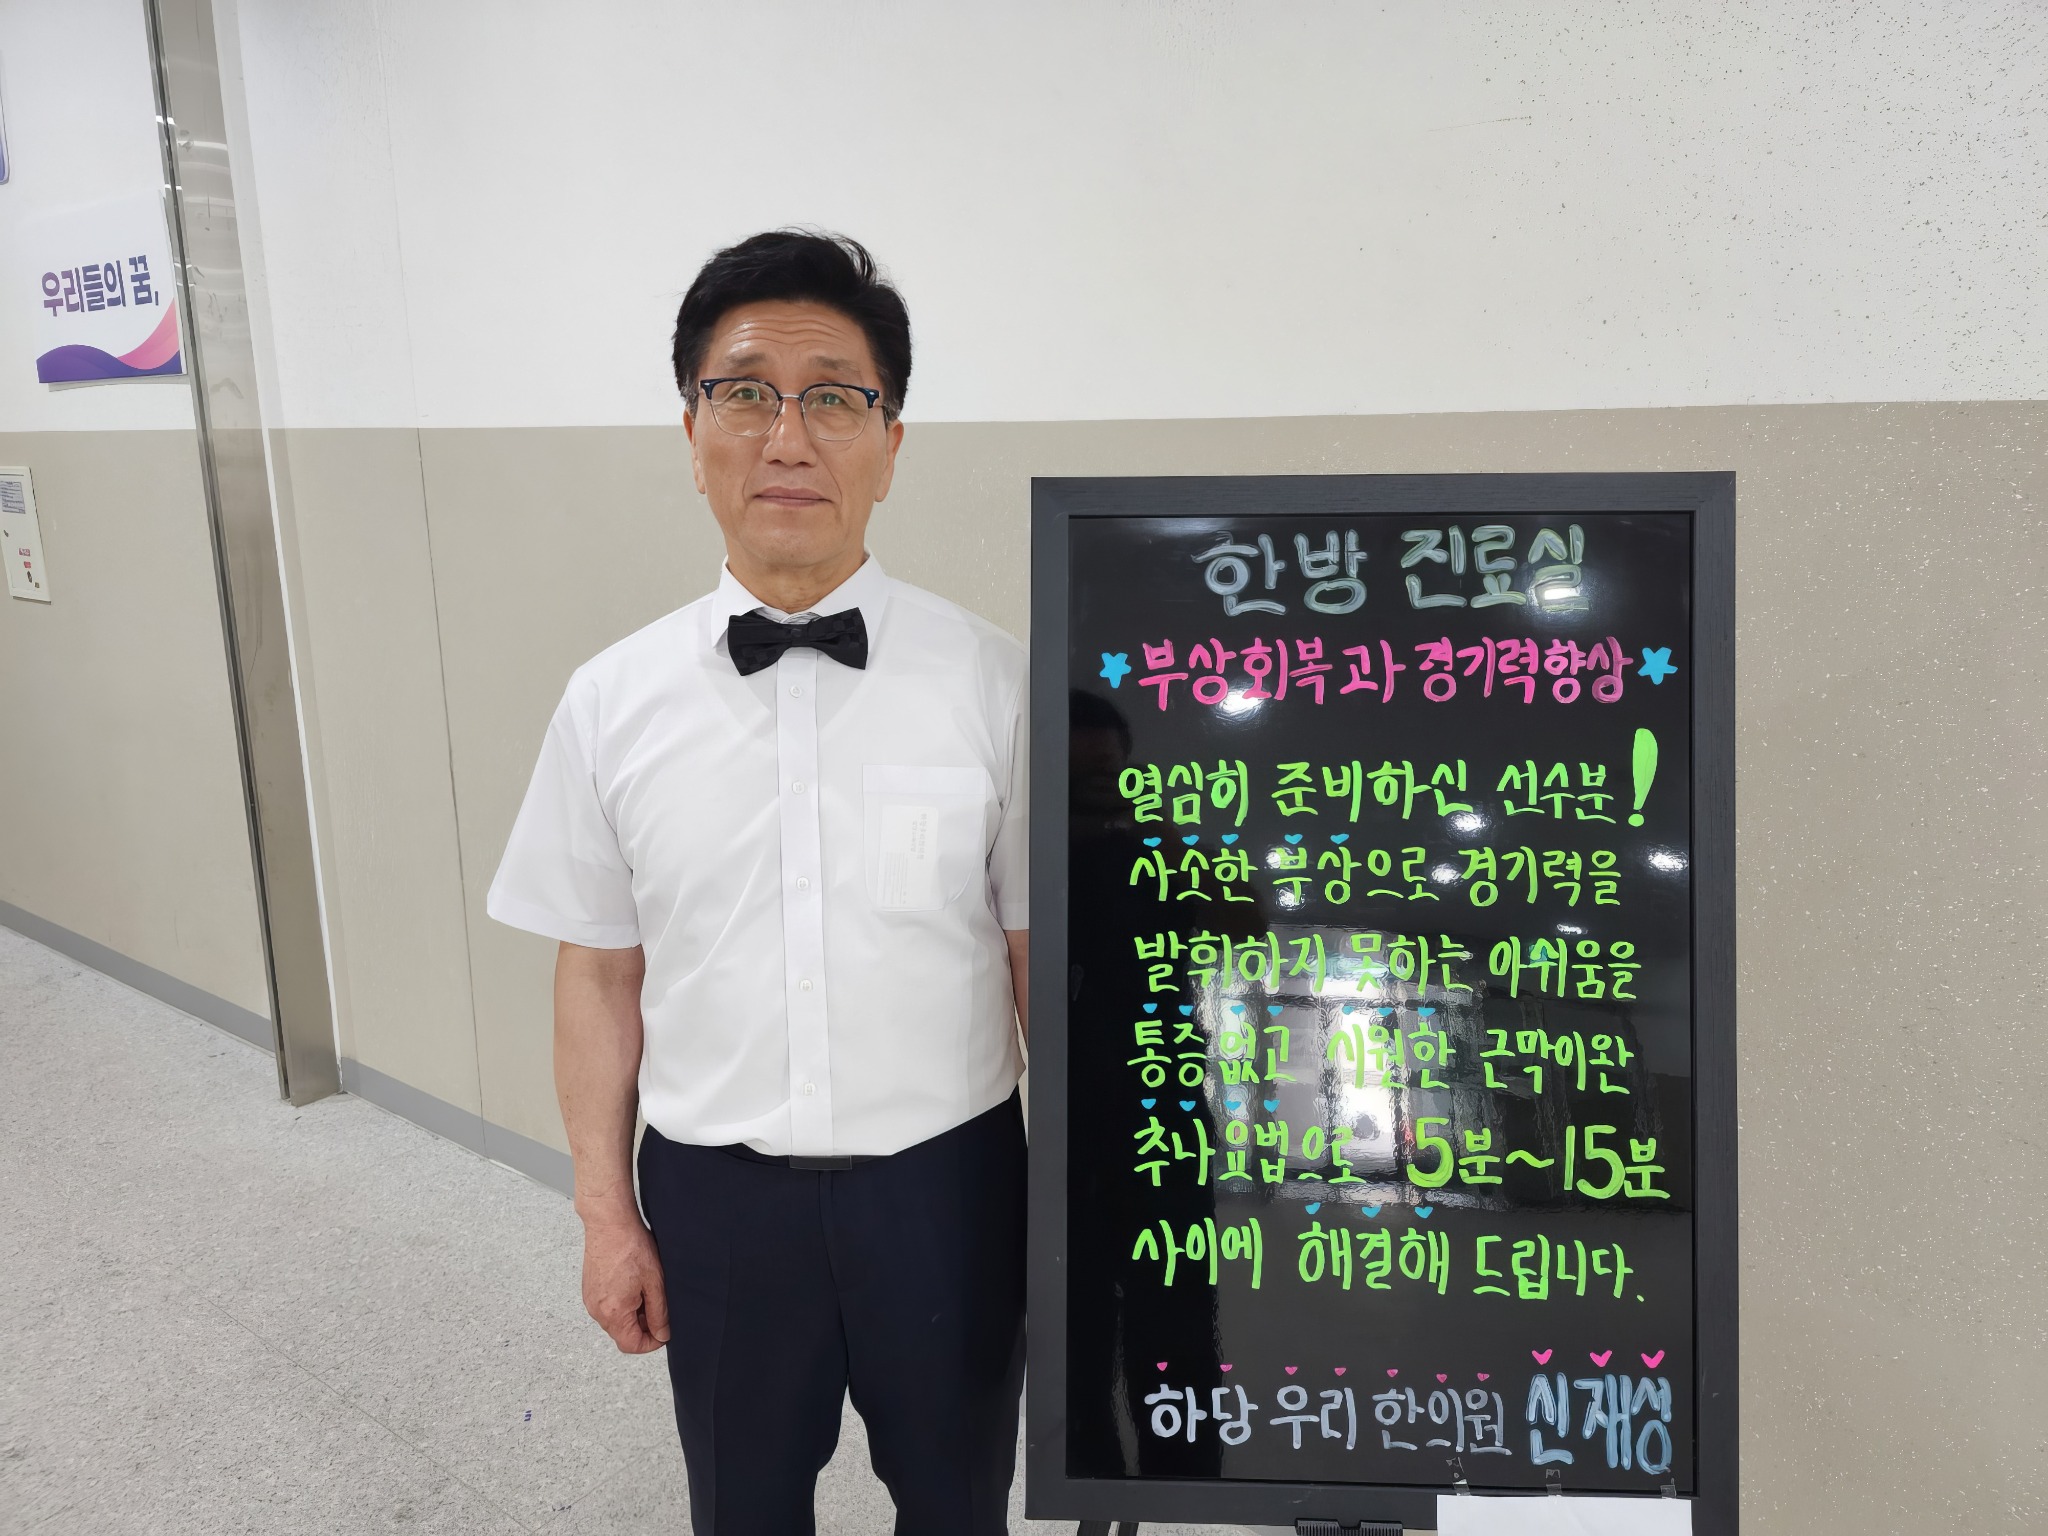 우리들의 꿈,
한방 진료실
부상회복과 경기력향상
열심히 준비하신 선수분!
사소한 부상으로 경기력을
발휘하지 못하는 아쉬움을
통증없고 시원한 근막이완
추나요법으로 5분~15분
사이에 해결해 드립니다.
하당 우리 한의원 신재성